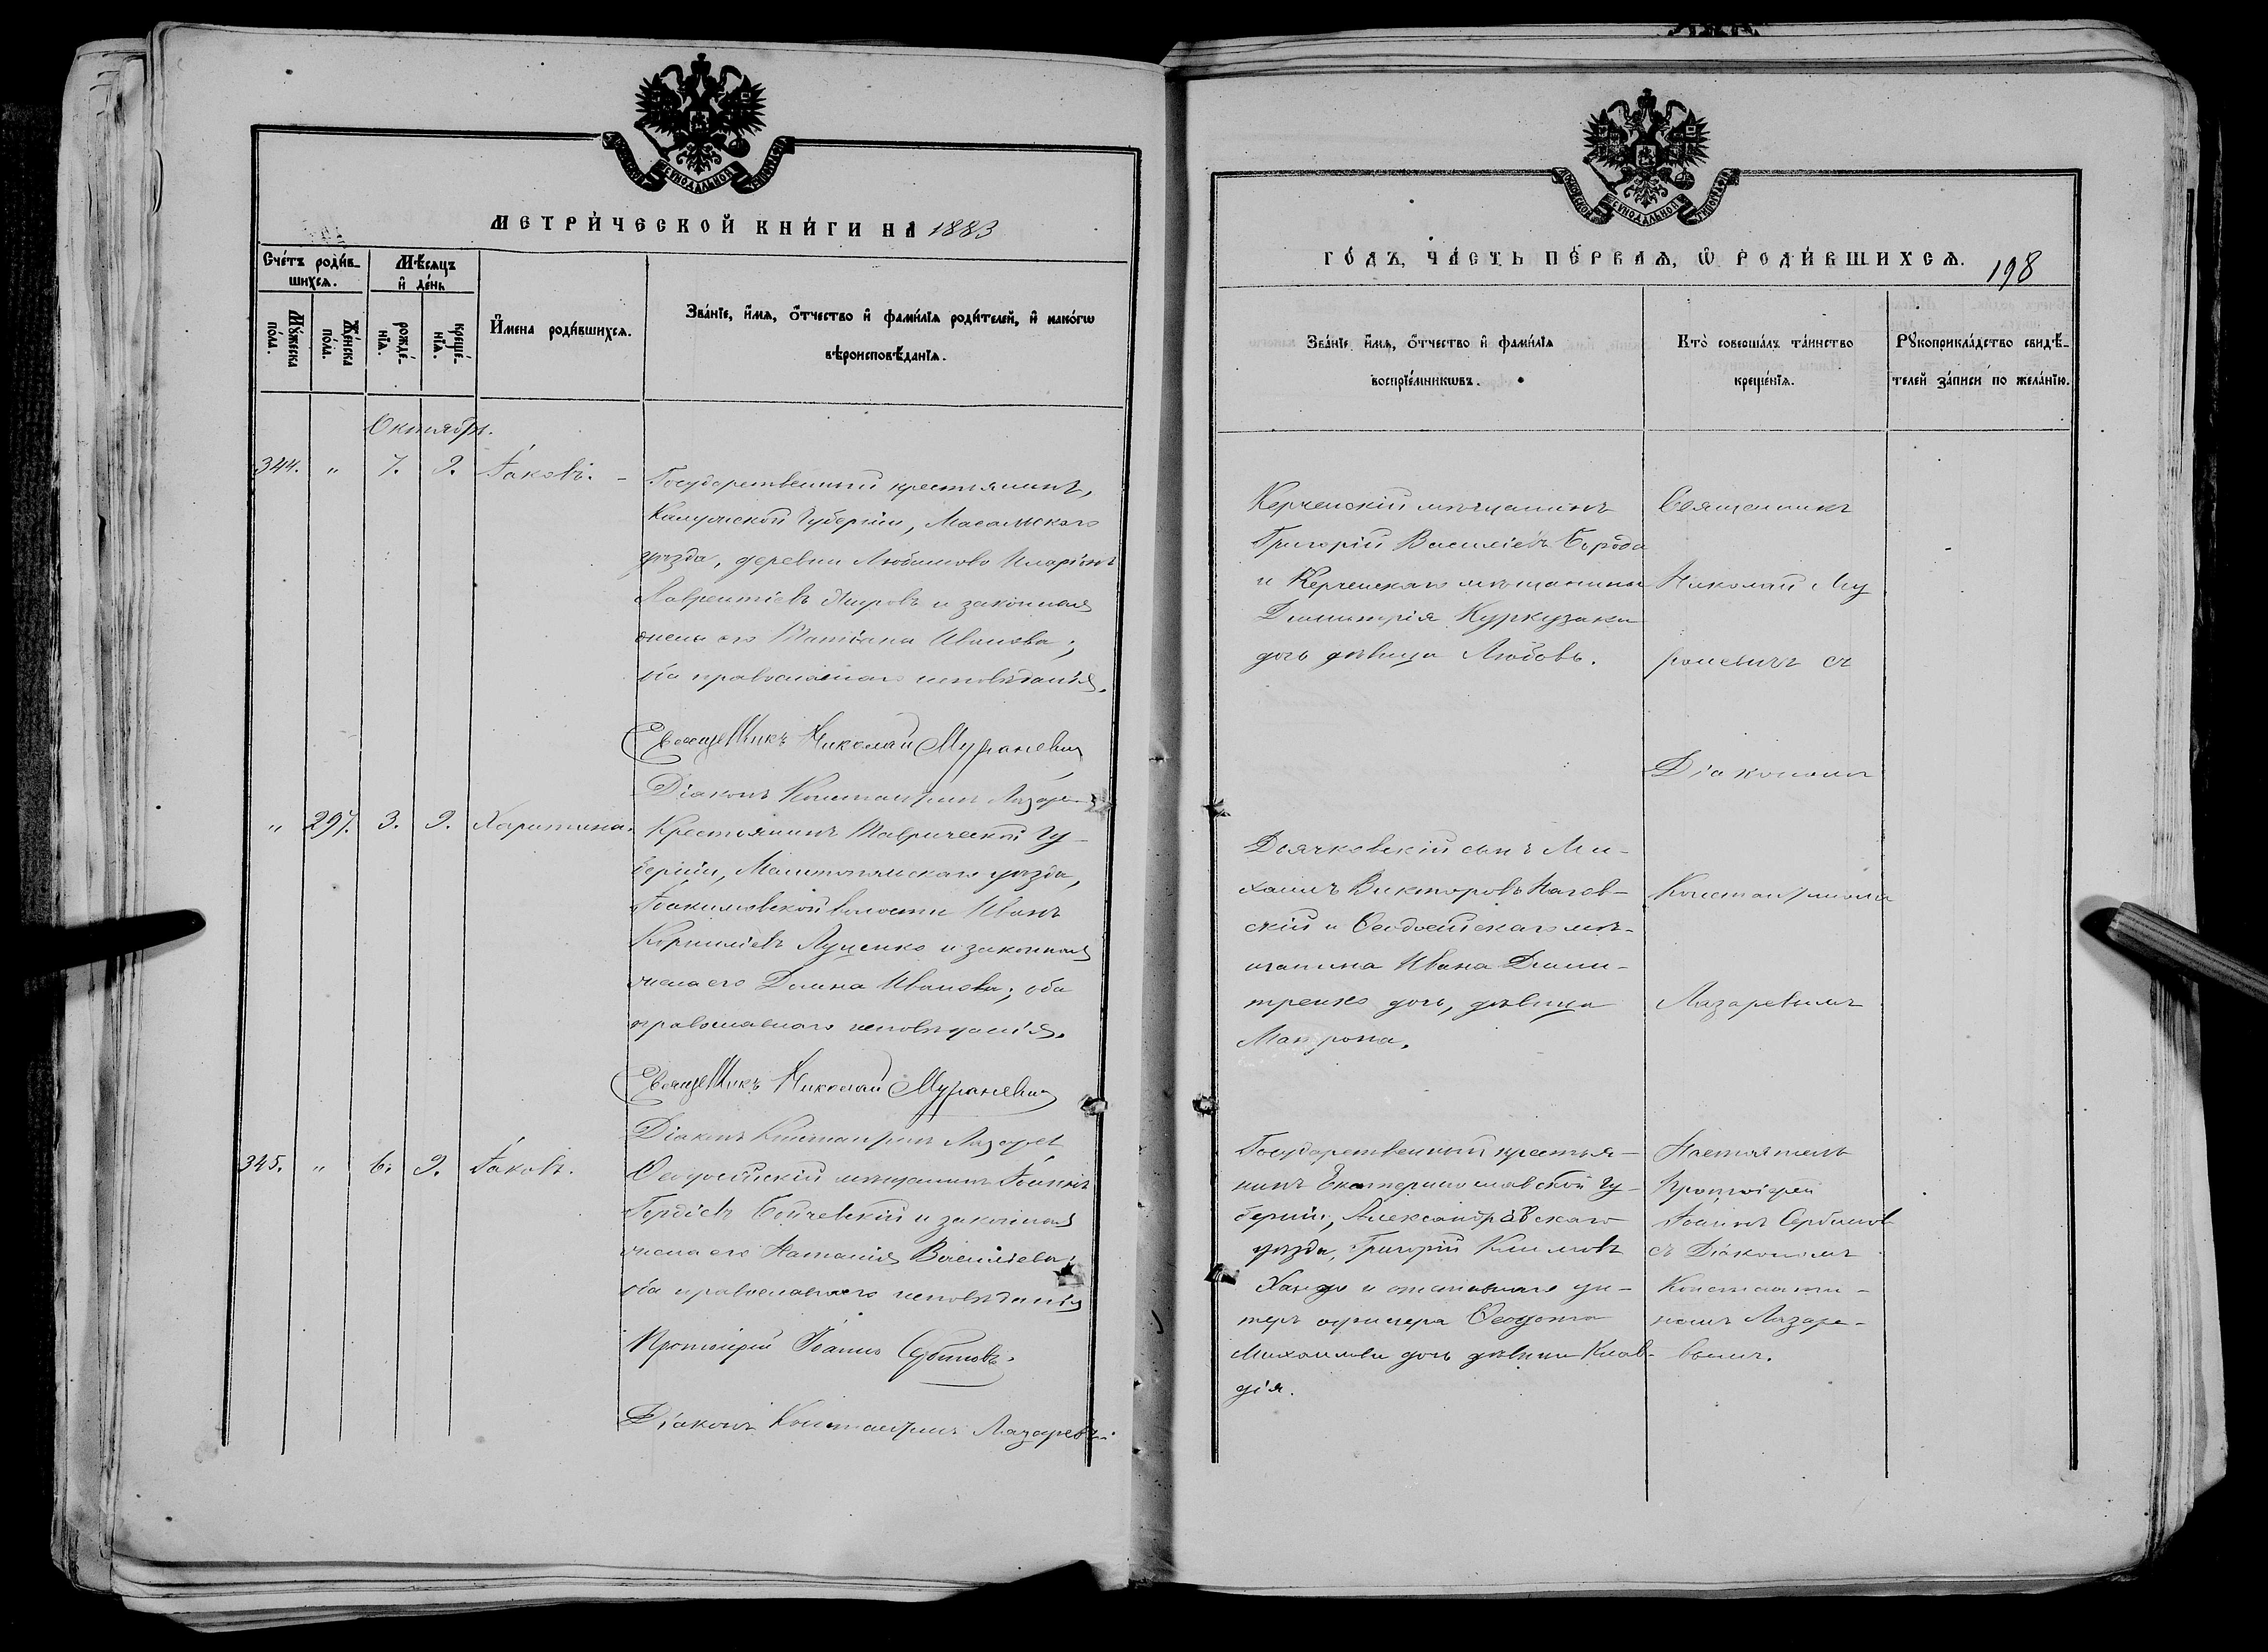 МОСКОВСКОЙ СѴНОДАЛЬНОЙ ТИПОГРАФІИ
МЕТРИ́ЧЕСКОЙ КНИ́ГИ НА 1883
Сче́тъ роди́в-
шихсѧ.
Мѣ́сѧцъ
и҆ де́нь
Мꙋ́жеска
по́ла.
Же́нска
по́ла.
рожде́-
нїѧ.
креще́-
нїѧ.
И҆мена роди́вшихсѧ.
Зва́нїе, и҆́мѧ, ѻ҆́тчество и҆ фами́лїѧ роди́телей, и҆ како́гѡ
вѣроисповѣ́данїѧ.
Октября.
344. " 7. 9. Іаковъ.
Государственный крестьянинъ,
Калужской Губерніи, Масальскаго
уѣзда, деревни Любимово Иларіонъ
Лаврентіевъ и законная
жена его Татіана Иванова;
оба православнаго исповѣданія.
Священникъ Николай Мураневичъ
Діаконъ Константинъ Лазаревъ
" 297. 3. 9. Харитина.
Крестьянинъ Таврической Гу-
берніи, Мелитопольскаго уѣзда,
Іоакимовской волости Иванъ
Корниліевъ Луценко и законная
жена его Домна Иванова; оба
православнаго исповѣданія.
Священникъ Николай Мураневичъ
Діаконъ Константинъ Лазаревъ
345. " 6. 9. Іаковъ.
Ѳеодосійскій мѣщанинъ Іоаннъ
Гордіевъ и законная
жена его Наталія Васильева;
оба православнаго исповѣданія
Протоіерей Іоаннъ Сербиновъ.
Діаконъ Константинъ Лазаревъ.
МОСКОВСКОЙ СѴНОДАЛЬНОЙ ТИПОГРАФІИ
ГО́ДЪ, ЧА́СТЬ ПЕ́РВАѦ, Ѽ РОДИ́ВШИХСѦ.
198
Зва́нїе и҆́мѧ, ѻ҆́тчество и҆ фами́лїѧ
воспрїе́мникѡвъ.
Кто̀ соверша́лъ та́инство
креще́нїѧ.
Рꙋкоприкла́дство свидѣ́-
телей за́писи по жела́нїю.
Керченскій мѣщанинъ
Григорій Василіевъ Борода
и Керченскаго мѣщанина
Димитрія Куркузаки
дочь дѣвица Любовь.
Священникъ
Николай Му
раневичъ съ
Діакономъ
Дьячковскій сынъ Ми-
хаилъ Викторовъ
скій и Ѳеодосійскаго мѣ-
щанина Ивана Дими-
тренко дочь, дѣвица
Матрона.
Константиномъ
Лазаревымъ
Государственный крестья-
нинъ Екатеринославской Гу-
берніи, Александровскаго
уѣзда, Григорій Климовъ
и отставного ун-
теръ офицера Ѳеодота
Михаилова дочь дѣвица Клав-
дія.
Настоятель
Протоіерей
Іоаннъ Сербиновъ
съ Діакономъ
Константи-
номъ Лазаре-
вымъ.